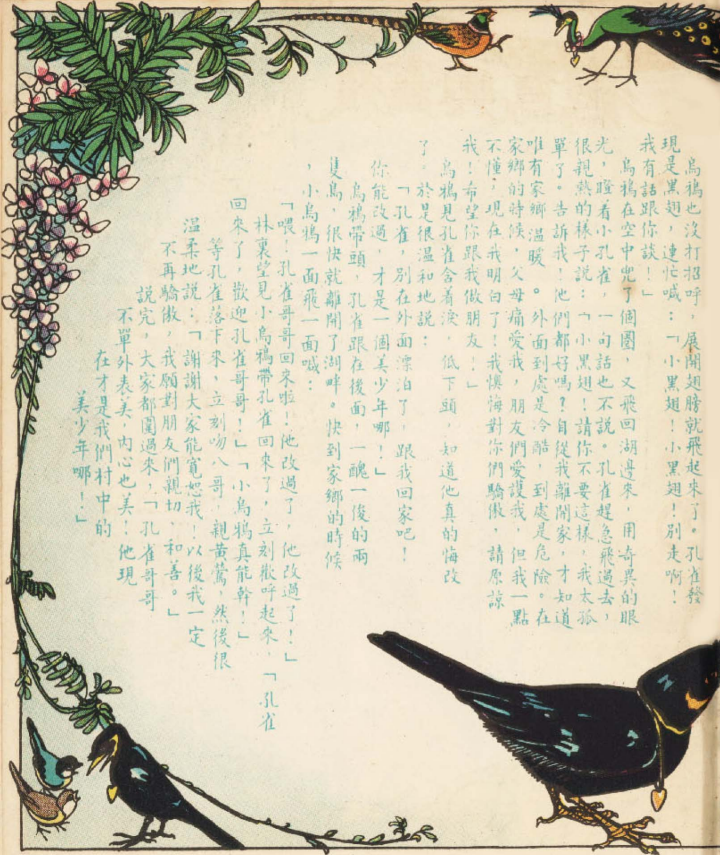 烏鴉也沒打招呼，展開翅膀就飛起來了。孔雀發
現是黑翅，連忙喊：「小黑翅！小黑翅！別走啊！
我有話跟你談！」
烏鴉在空中兜了個圈，又飛回湖邊來，用奇異的眼
光，瞪着小孔雀，一句話也不說。孔雀趕急飛過去，
很親熱的樣子說：「小黑翅！請你不要這樣，我太孤
單了。告訴我！他們都好嗎？自從我離開家，才知道
唯有家鄉溫暖。外面到處是冷酷，到處是危險。在
家鄉的時候，父母痛愛我，朋友們愛護我，但我一點
不懂，現在我明白了！我懊悔對你們驕傲，請原諒
我！希望你跟我做朋友！」
烏鴉見孔雀含着淚，低下頭，知道他真的悔改
了。於是很溫和地說：
「孔雀，別在外面漂泊了，跟我回家吧！
你能改過，才是一個美少年哪！」
烏鴉帶頭，孔雀跟在後面，一醜一俊的兩
隻鳥，很快就離開了湖畔。快到家鄉的時候
，小烏鴉一面飛一面喊：
「喂！孔雀哥哥回來啦！他改過了，他改過了！」
林裏望見小烏鴉帶孔雀回來了，立刻歡呼起來，「孔雀
回來了，歡迎孔雀哥哥！」「小烏鴉真能幹！」
等孔雀落下來，立刻吻八哥，親黃鶯，然後很
溫柔地說：「謝謝大家能寬恕我！以後我一定
不再驕傲，我願對朋友們親切，和善。」
說完，大家都圍過來，「孔雀哥哥
不單外表美，內心也美！他現
在才是我們村中的
美少年哪！」